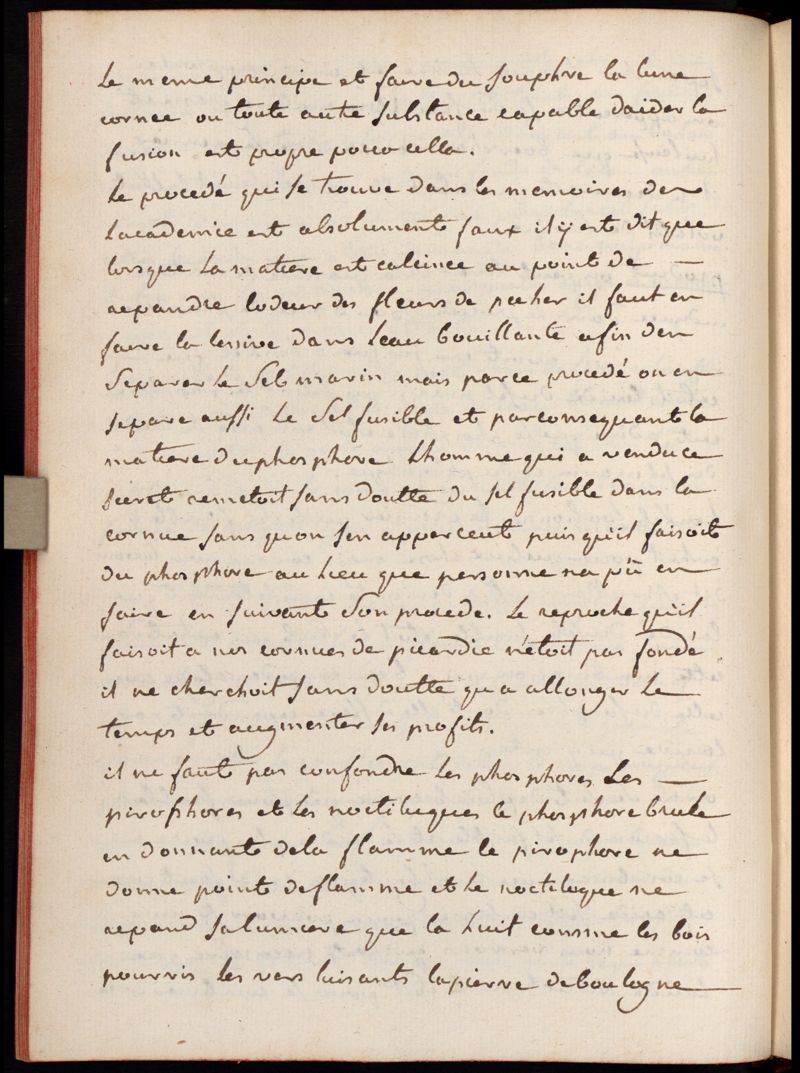 Le meme principe et faire du souphre la lune
cornee ou toute autre substance capable daider la
fusion est propre pour cella.
Le procedé qui se trouve dans les memoires de
Lacademie est absolument faux il y est dit que
lorsque La matiere est calcinee au point de —
repandre lodeur des fleurs de pecher il faut en
faire la lessive dans Leau bouillante afin den
Separer Le Sel marin mais par ce procedé on en
separe aussi Le Sel fusible et par consequant la
matiere du phosphore Lhomme qui a vendu ce
secret remetoit sans doutte du sel fusible dans la
cornue sans quon sen apperceut puis qu'il faisoit
du phosphore au Lieu que personne na pû en
faire en suivant Son procede. Le reproche qu'il
faisoit a nos cornues de picardie n'etoit pas fondé
il ne cherchoit sans doutte qu a allonger Le
temps et augmenter ses profits.
il ne faut pas confondre Les phosphores Les —
pirophores et Les noctiluques le phosphore brule
en donnant de la flamme le pirophore ne
donne point de flamme et Le noctiloque ne
repand sa lumiere que la Nuit comme les bois
pourris Les vers luisants la pierre de boulogne —